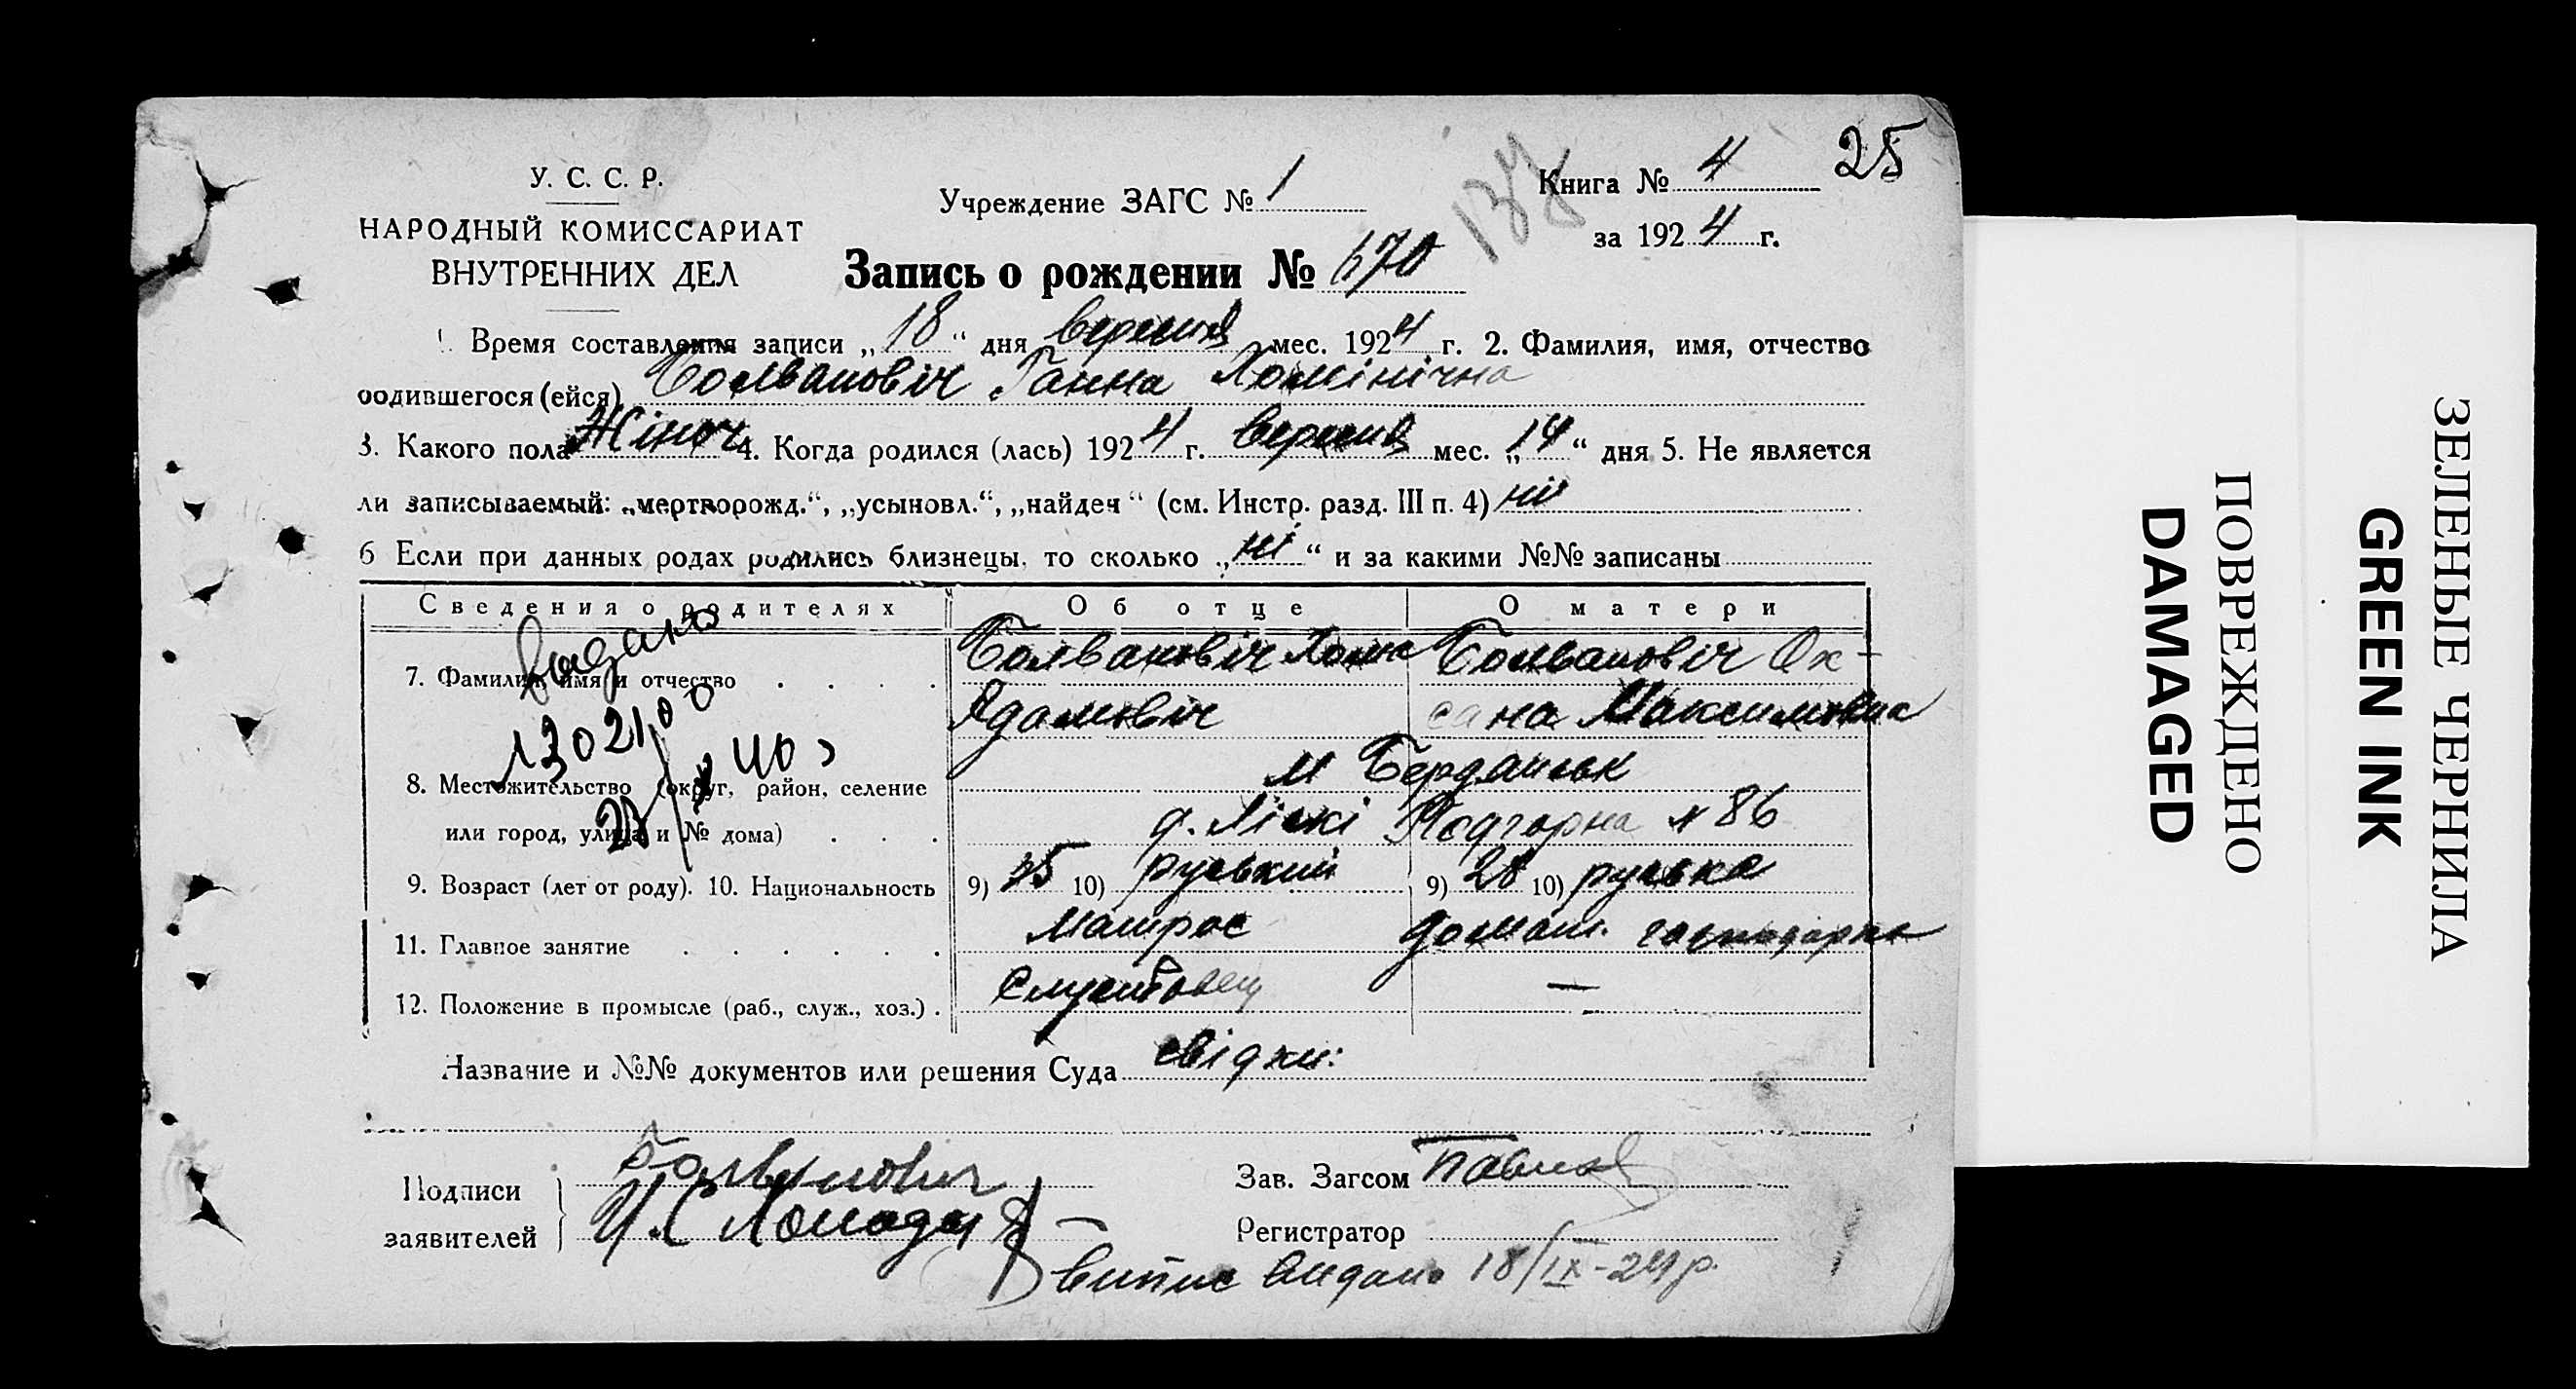 25
У. С. С. Р.
НАРОДНЫЙ КОМИССАРИАТ
ВНУТРЕННИХ ДЕЛ
Учреждение ЗАГС № 1
Книга № 4
за 1924 г.
Запись о рождении № 670
Время составления записи „18“ дня вересня мес. 1924 г. 2. Фамилия, имя, отчество
родившегося (ейся) Болванович Ганна Хомінічна
3. Какого пола Жіноч 4. Когда родился (лась) 1924 г. вересня мес. „14“ дня 5. Не является
ли записываемый: „мертворожд.“, „усыновл.“, „найден“ (см. Инстр. разд. III п. 4) ні
6 Если при данных родах родились близнецы, то сколько „ні“ и за какими №№ записаны
Сведения о родителях Об отце О матери
7. Фамилия, имя и отчество
Болвановіч Хома
Адамовіч
Болвановіч Ок-
сана Максимовна
видано
8. Местожительство (округ, район, селение
или город, улица и № дома)
м Бердянськ
д. Ліскі Подгорна № 86
9. Возраст (лет от роду). 10. Национальность 9) 35 10) руський 9) 28 10) руська
11. Главное занятие матрос домаш. господарка
12. Положение в промысле (раб., служ., хоз.) —
Название и №№ документов или решения Суда свідки:
Подписи
заявителей
Болванович
Зав. Загсом
Регистратор
Випис видано 18/IX-24р.
DAMAGED
ПОВРЕЖДЕНО
GREEN INK
ЗЕЛЕНЫЕ ЧЕРНИЛА